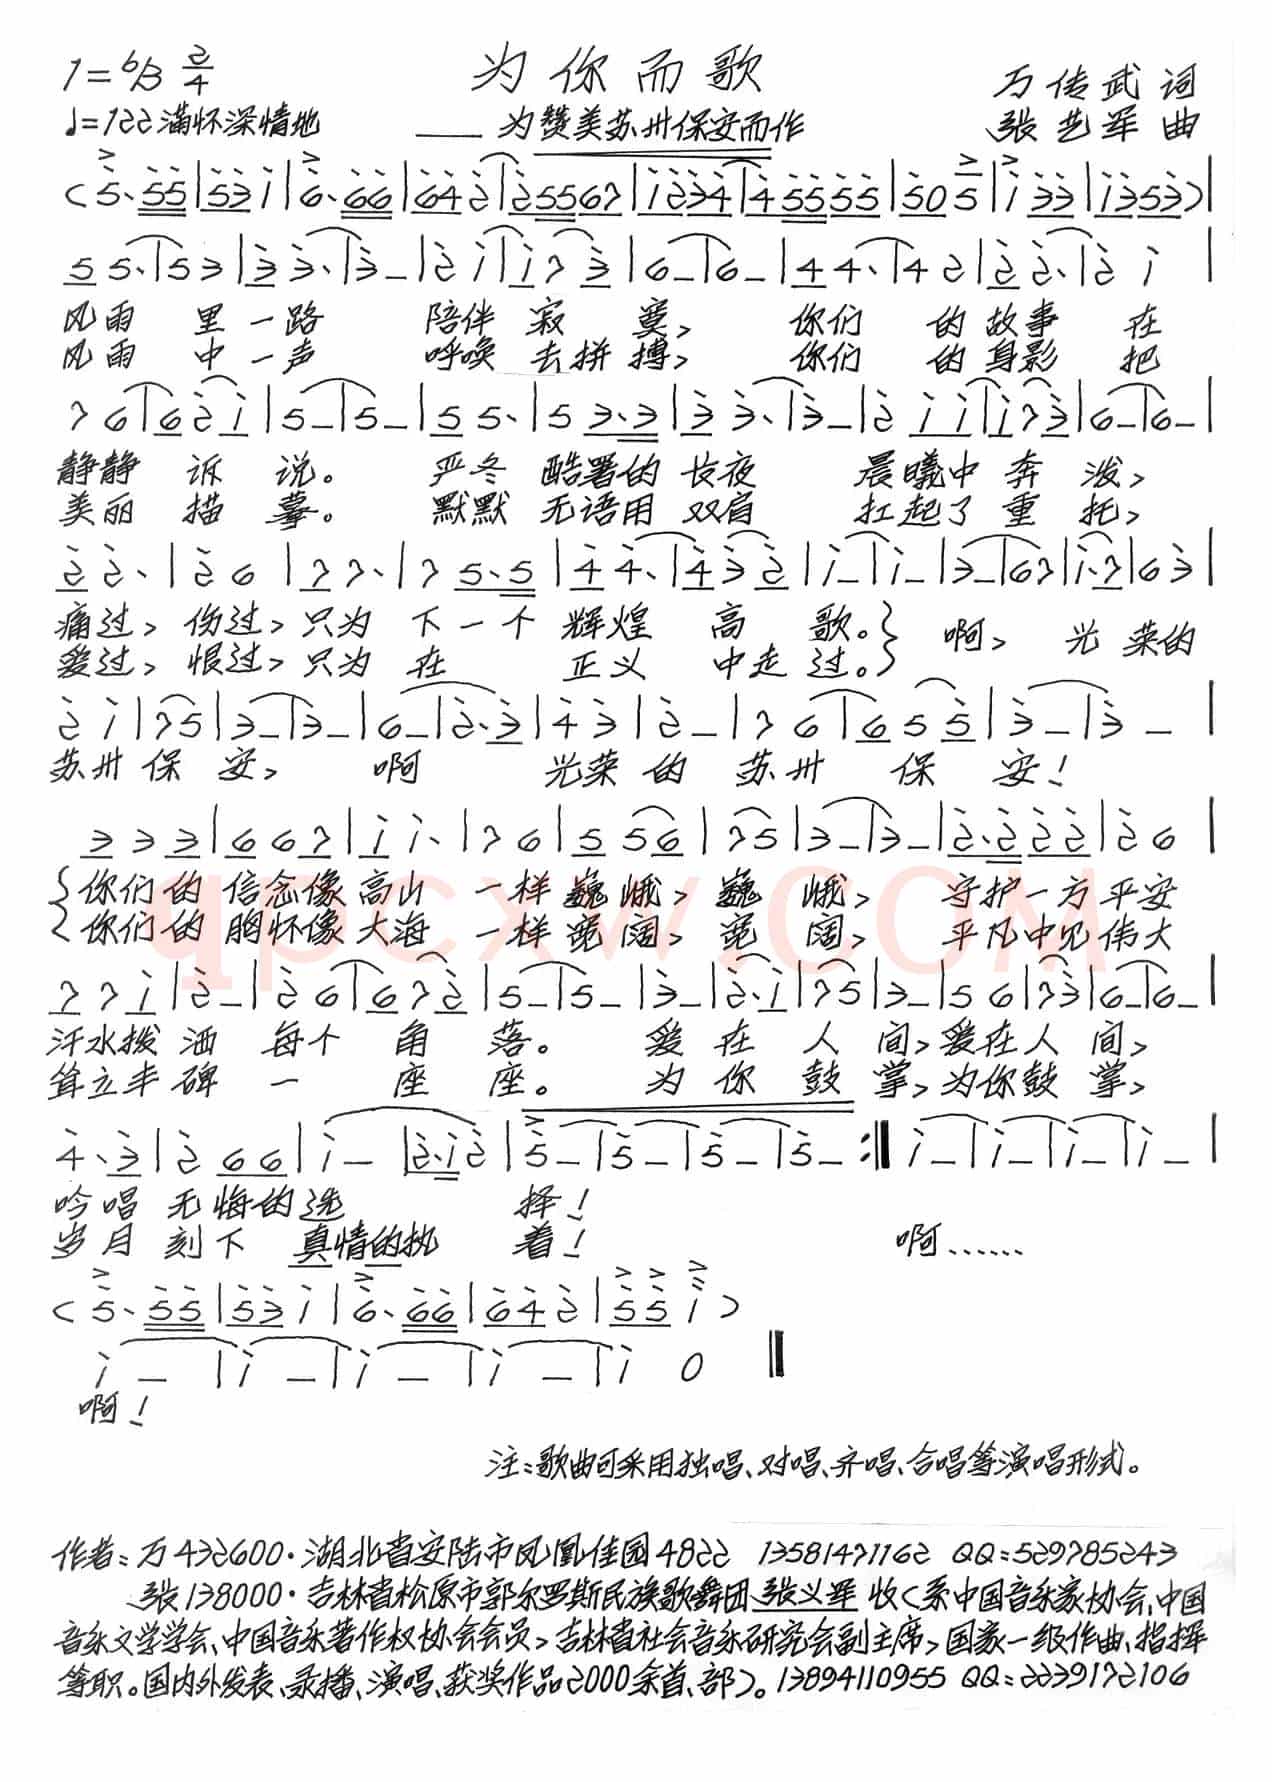 为你而歌
1=♭B 2/4
万传武 词
♩=122 满怀深情地
——为赞美苏州保安而作
张艺军 曲
(5·55|553 1|6·66|664 2|2 5567|1234|4 5555|50 5|1 33|1353)|
5 5·|5 3|3 3·|3 -|2 1|1 7 3|6 -|6 -|4 4·|4 2|2 2·|2 1|
风雨 里一路 陪伴寂寞, 你们的故事在
风雨 中一声 呼唤去拼搏, 你们的身影把
7 6|6 2 1|5 -|5 -|5 5·|5 3·3|3 3·|3 -|2 1 1|1 7 3|6 -|6 -|
静静诉说。 严冬酷署的长夜 晨曦中奔泼,
美丽描摹。 默默无语用双肩 扛起了重托,
2 2·|2 6|7 7·|7 5·5|4 4·|4 3 2|1 -|1 -|3 -|6 7|1·7|6 3|
痛过, 伤过, 只为下一个辉煌高歌。} 啊, 光荣的
爱过, 恨过, 只为在正义中走过。
2 1|7 5|3 -|3 -|6 -|2·3|4 3|2 -|7 6|6 5 5|3 -|3 -|
苏州保安, 啊 光荣的苏州保安!
3 3 3|6 6 7|1 1·|7 6|5 5 6|7 5|3 -|3 -|2·2 2 2|2 6|
你们的信念像高山一样巍峨, 巍峨, 守护一方平安
你们的胸怀像大海一样宽阔, 宽阔, 平凡中见伟大
7 7 1|2 -|2 6|6 7 2|5 -|5 -|3 -|2·1|7 5|3 -|5 6|7 3|6 -|6 -|
汗水拨洒每个角落。 爱在人间, 爱在人间,
耸立丰碑一座座。 为你鼓掌, 为你鼓掌,
4·3|2 6 6|1 -|2·1 2|5 -|5 -|5 -|5 -:‖1 -|1 -|1 -|1 -|
吟唱无悔的选择!
岁月刻下真情的执着! 啊……
(5·55|553 1|6·66|664 2|5 5 1)
1 -|1 -|1 -|1 -|1 0‖
啊!
注:歌曲可采用独唱、对唱、齐唱、合唱等演唱形式。
作者:万 432600·湖北省安陆市凤凰佳园4822 13581471162 QQ:529785243
张 138000·吉林省松原市郭尔罗斯民族歌舞团 张义军 收(系中国音乐家协会、中国
音乐文学学会、中国音乐著作权协会会员,吉林省社会音乐研究会副主席,国家一级作曲、指挥
等职。国内外发表、录播、演唱、获奖作品2000余首、部)。13894110955 QQ:2239172106
qpcxw.COM